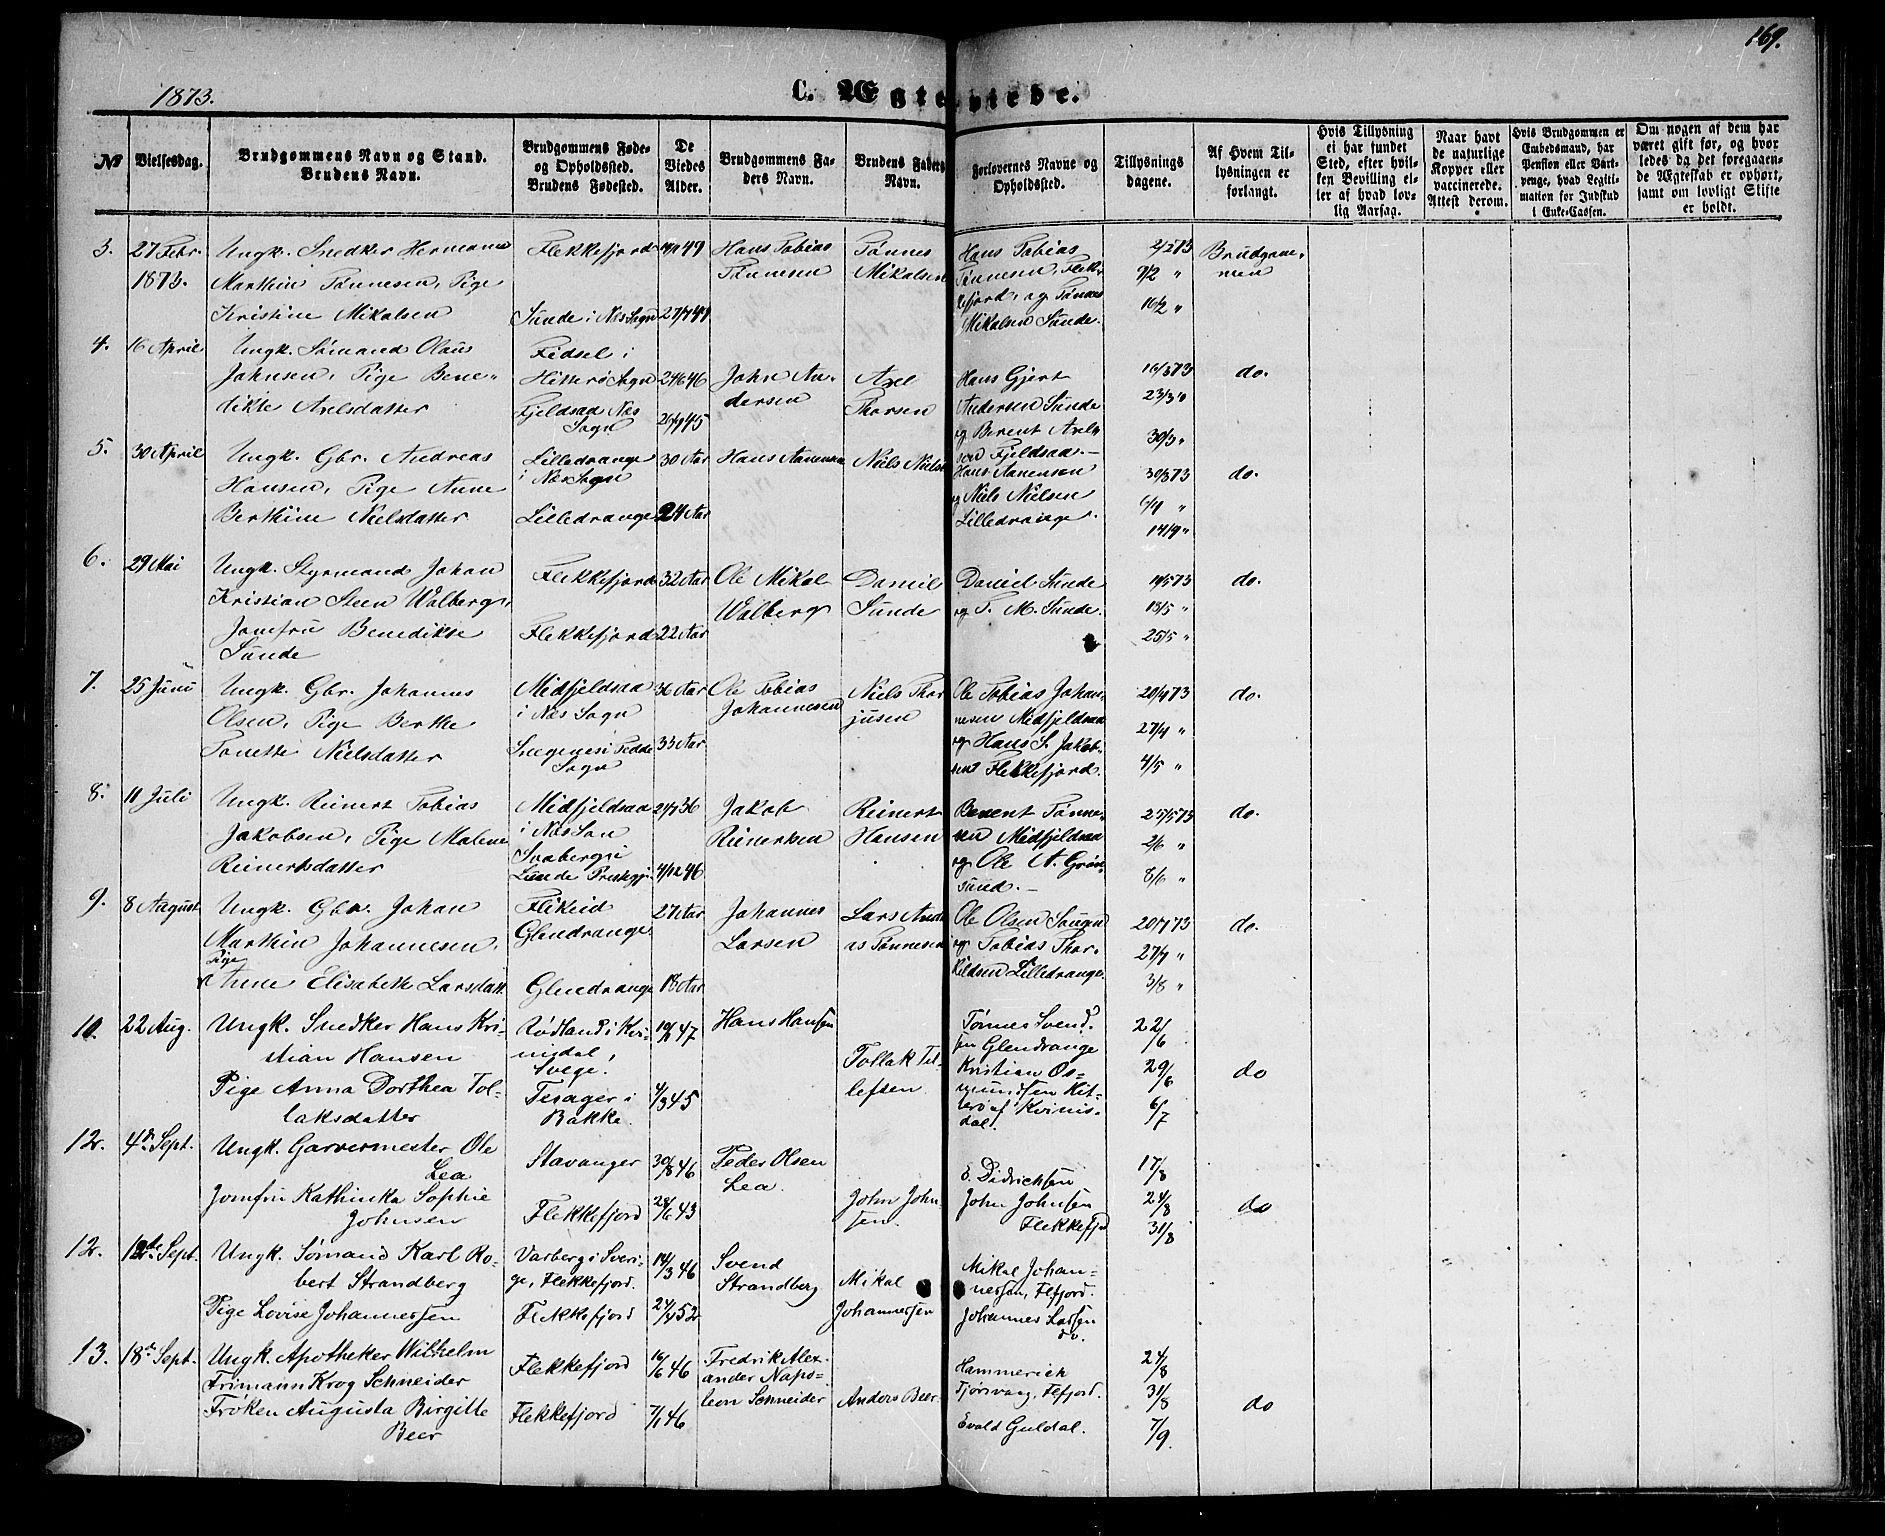 169.
1873.
C. Ægteviede.
No
Vielsesdag.
Brudgommens Navn og Stand.
Brudens Navn.
Brudgommens Føde-
og Opholdssted.
Brudens Fødested.
De
Viedes
Alder.
Brudgommens Fa-
ders Navn.
Brudens Faders
Navn.
Forlovernes Navne og
Opholdssted.
Tillysnings
dagene.
Af Hvem Til-
lysningen er
forlangt.
Hvis Tillysning
ei har fundet
Sted, efter hvil-
ken Bevilling el-
ler af hvad lov-
lig Aarsag.
Naar havt
de naturlige
Kopper eller
vaccinerede.
Attest derom.
Hvis Brudgommen er
Embedsmand, har
Pension eller Vart-
penge, hvad Legiti-
mation for Indskud
i Enke-Cassen.
Om nogen af dem har
været gift før, og hvor
ledes da det foregaaen-
de Ægteskab er ophørt,
samt om lovligt Skifte
er holdt.
3. 27 Febr. 1873.
Ungk. Snedker Hermann
Marthin Tønnesen, Pige
Kristine Mikalsen
Flekkefjord
Sunde i Næs Sogn
Hans Tobias
Tønnesen
Tønnes
Mikalsen
Hans Tobias
Tønnesen, Flek-
kefjord, og Tønnes
Mikalsen Sunde.
2/2 73
9/2 "
16/2 "
Brudgom-
men
4. 16 April
Ungk. Sømand Olaus
Johnsen, Pige Bene-
dikte Axelsdatter
Fidsel i
Hitterø Sogn
Fjeldsaa Næs
Sogn
24/6 46
John An-
dersen
Axel
Thorsen
Hans Gjert
Andersen Sunde
og Berent Axel-
sen Fjeldsaa.
16/3 73
23/3 "
30/3 "
do.
5. 30 April
Ungk. Gbr. Andreas
Hansen, Pige Anne
Berthine Nielsdatter
Lilledrange
i Næs Sogn
Lilledrange
30 Aar
24 Aar
Hans Aanensen
Niels Nielsen
Hans Aanensen
og Niels Nielsen
Lilledrange.
30/3 73
6/4 "
14/4 "
do.
6. 29 Mai
Ungk. Styrmand Johan
Kristian Steen Walberg,
Jomfru Benedikte
Sunde
Flekkefjord
Flekkefjord
32 Aar
22 Aar
Ole Mikal
Walberg
Daniel
Sunde
Daniel Sunde
og T. M. Sunde.
18/5 "
25/5 "
do.
7. 25 Juni
Ungk. Gbr. Johannes
Olsen, Pige Berthe
Tonette Nielsdatter
Midfjeldsaa
i Næs Sogn
Fedde
Sogn
36 Aar
33 Aar
Ole Tobias
Johannesen
Niels Thor
jusen
Ole Tobias Johan-
nesen Midfjeldsaa
og Hans S. Jakob-
sen Flekkefjord.
20/4 73
27/4 "
4/5 "
do.
8. 11 Juli
Ungk. Reinert Tobias
Jakobsen, Pige Malene
Reinertsdatter
Midfjeldsaa
i Næs Son
Svaberg i
Lunde Prestegj.
4/12 46
Jakob
Reinertsen
Reinert
Hansen
Berent Tønne-
sen Midfjeldsaa
og Ole A. Grøn-
sund.
25/5 73
2/6 "
8/6 "
do.
9. 8 August
Ungk. Gbr. Johan
Marthin Johannesen,
Pige
Anne Elisabeth Larsdatt.
Flikeid
Glendrange
Glendrange
27 Aar
18 Aar
Johannes
Larsen
Lars Andre
as Tønnesen
Ole Olsen Sougn
og Tobias Thor-
kildsen Lilledrange.
20/7 73
27/7 "
3/8 "
do.
10. 22 Aug.
Ungk. Snedker Hans Kri-
stian Hansen
Pige Anna Dorthea Tol-
laksdatter
Rødland i Kvi-
nisdal,
Svege.
Tesager i
Bakke.
4/3 45
Hans Hansen
Tollak Tel-
lefsen
Tønnes Svend-
sen Glendrange
Kristian Os-
mundsen Hit-
terø af Kvinis-
dal.
22/6
29/6
6/7
do
12. 4de Sept.
Ungk. Garvermester Ole
Lea
Jomfru Kathinka Sophie
Johnsen
Stavanger
Flekkefjord
30/8 46
28/6 43
Peder Olsen
Lea.
John John-
sen.
E. Didrichsen
John Johnsen
Flekkefjd
17/8
24/8
31/8
do
12. 12te Sept.
Ungk. Sømand Karl Ro-
bert Strandberg
Pige Lovise Johannessen
Varberg i Sveri-
ge, Flekkefjord.
Flekkefjord
14/3 46
24/4 52
Svend
Strandberg
Mikal
Johannessen
Mikal Johan-
nessen, Flefjord.
Johannes Lassen
do.
13. 18de Sept.
Ungk. Apotheker Wilhelm
Frimann Krog Schneider
Frøken Augusta Birgitte
Beer
Flekkefjord
Flekkefjord
16/6 46
7/1 46
Fredrik Alex-
ander Napo-
leon Schneider
Anders Beer.
Hammerich
Tjørsvaag, Flefjord.
Evald Guldal.
24/8
31/8
7/9.
do